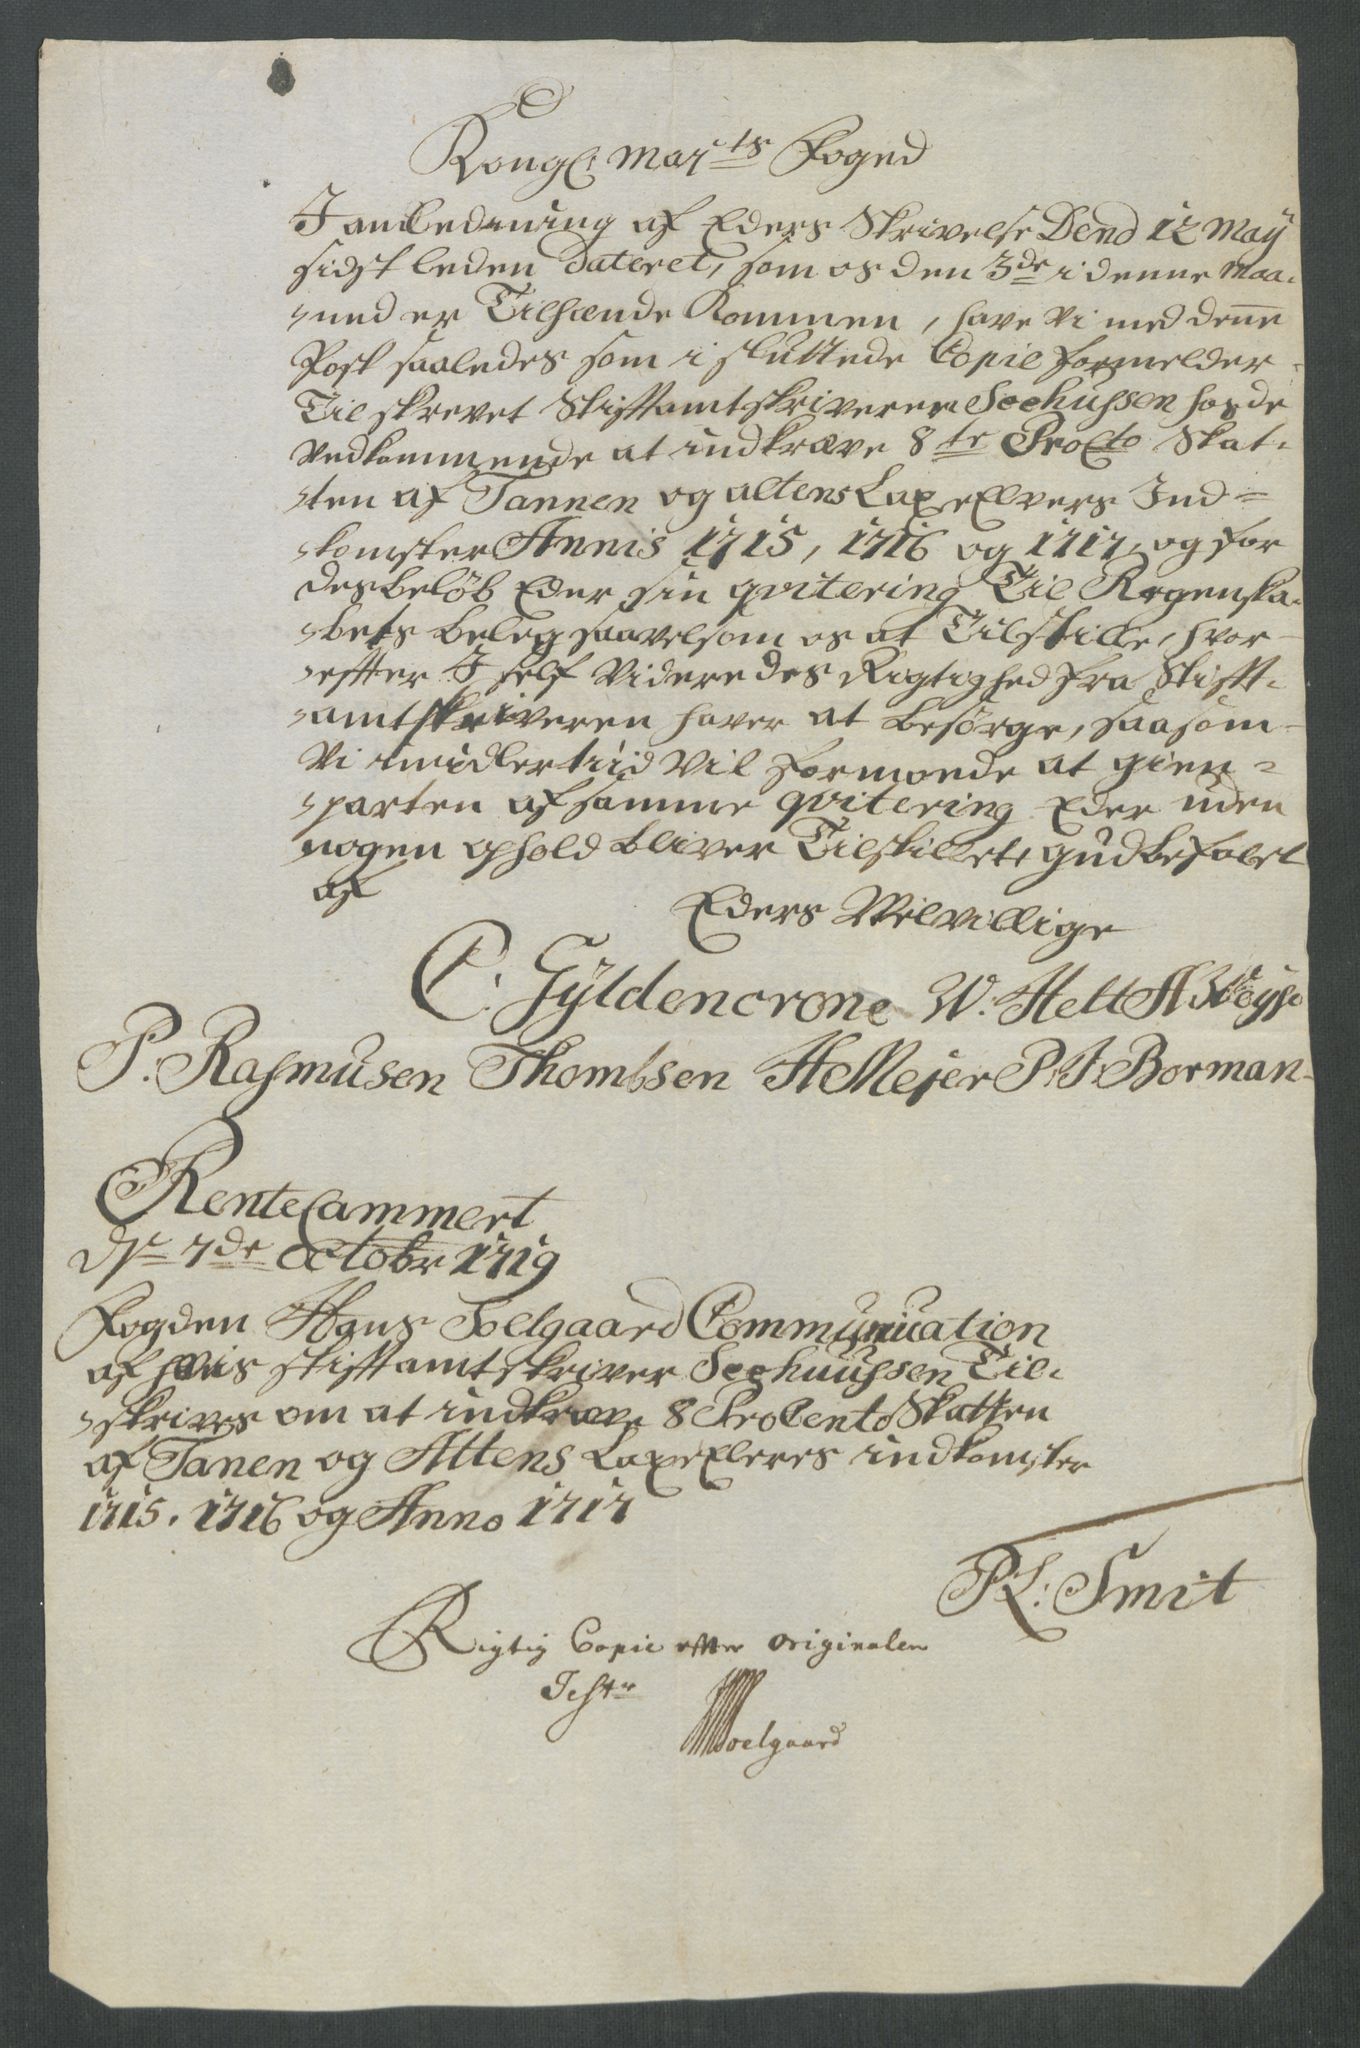 Kongl: May:ts Foged
I anledning af Eders Skrivelse Dend 12 Maÿ
sidstleden dateret, som os den 3de i denne Maa-
-ned er Tilhænde Kommen, have Vi med denne
Post saaledes som i sluttede Copie formelder
Tilskrevet Stiftamtskriveren Seehussen hos de
Vedkommende at indkræve 8te ProCto Skat-
-ten af Tannen og altens Laxe Elvers Ind-
-komster Annis 1715, 1716 og 1717, og for
des beløb Eder sin qvitering Til Regenska-
-bets beleg saavelsom os at Tilstille, hvor-
-effter I self Videre des Rigtighed fra Stifft-
-amtskriveren haver at besørge, saasom
Vi imidlertiid Vil formoede at gien-
-parten af samme qvitering Eder uden
nogen ophold bliver Tilstillet, gudbefalet
af
Eders Velvillige
C. Gÿldencrone W. Helt A Weyse
P. Rasmusen Thombsen H Mejer P. J. Borman
RenteCammert
d. 7de Octobr 1719
Fogden Hans Soelgaard Communication
af hvis stifftamtskriver Seehuussen Til-
-skrives om at indkræve 8 ProCento Skatten
af Tanen og Altens Laxe Elvers indkomster
1715. 1716 og Anno 1717
PL: Smit
Rigtig Copie efter originalen
Tester
HSoelgaard